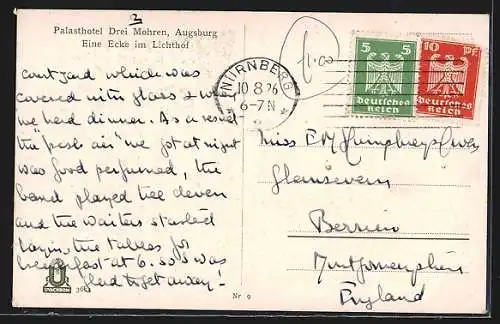 3
Palasthotel Drei Mohren, Augsburg
Eine Ecke im Lichthof
courtyard which was
covered with glass & where
we had dinner. As a result
the "fresh air" we got at night
was food perfumed, the
band played till eleven
and the waiters started
laying the tables for
breakfast at 6.30. I was
glad to get away!
1.00
NÜRNBERG
10 8.26
6-7 N
5 5
Deutsches
Reich
10 Pf
Deutsches
Reich
Miss E M Humphreys Owen
Glansevern
Berriew
Montgomeryshire
England
Nr 9